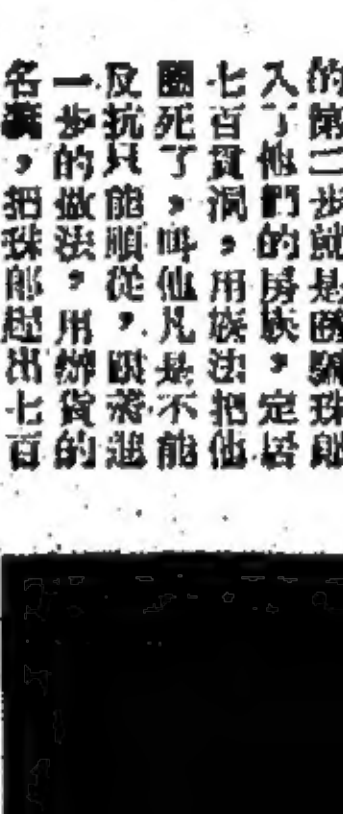 的第二步就是面騙珠郎
入了他們的房族,定居
七百貢洞,用族法把他
圈死了,叫他凡是不能
反抗只能順從,跟著進
一步的做法,用辦貨的
名義,把珠郎趕出七百